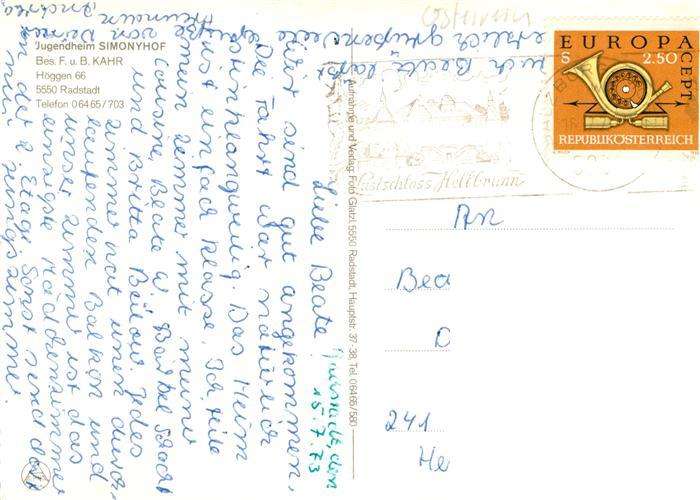 Jugendheim SIMONYHOF
Bes. F. u. B. KAHR
Höggen 66
5550 Radstadt
Telefon 06465/703
15.7.73
Liebe Beate!
Wir sind gut angekommen,
Die Fahrt war natürlich
stinklangweilig. Das Heim
ist einfach klasse. Ich teile
mein Zimmer mit meiner
Cousine, Beate
und Britta Jedes
Zimmer hat einen
laufenden Balkon und
unser Zimmer ist das
einzigste Mädchenzimmer
in der 2. Etage. Sonst sind dort
nur Jungszimmer.
Aufnahme und Verlag: Foto Glatzl, 5550 Radstadt, Hauptstr. 37-38, Tel. 06465/550
Lustschloss Hellbrunn
EUROPA
CEPT
S 2.50
REPUBLIK ÖSTERREICH
An
Bea
D
241
He